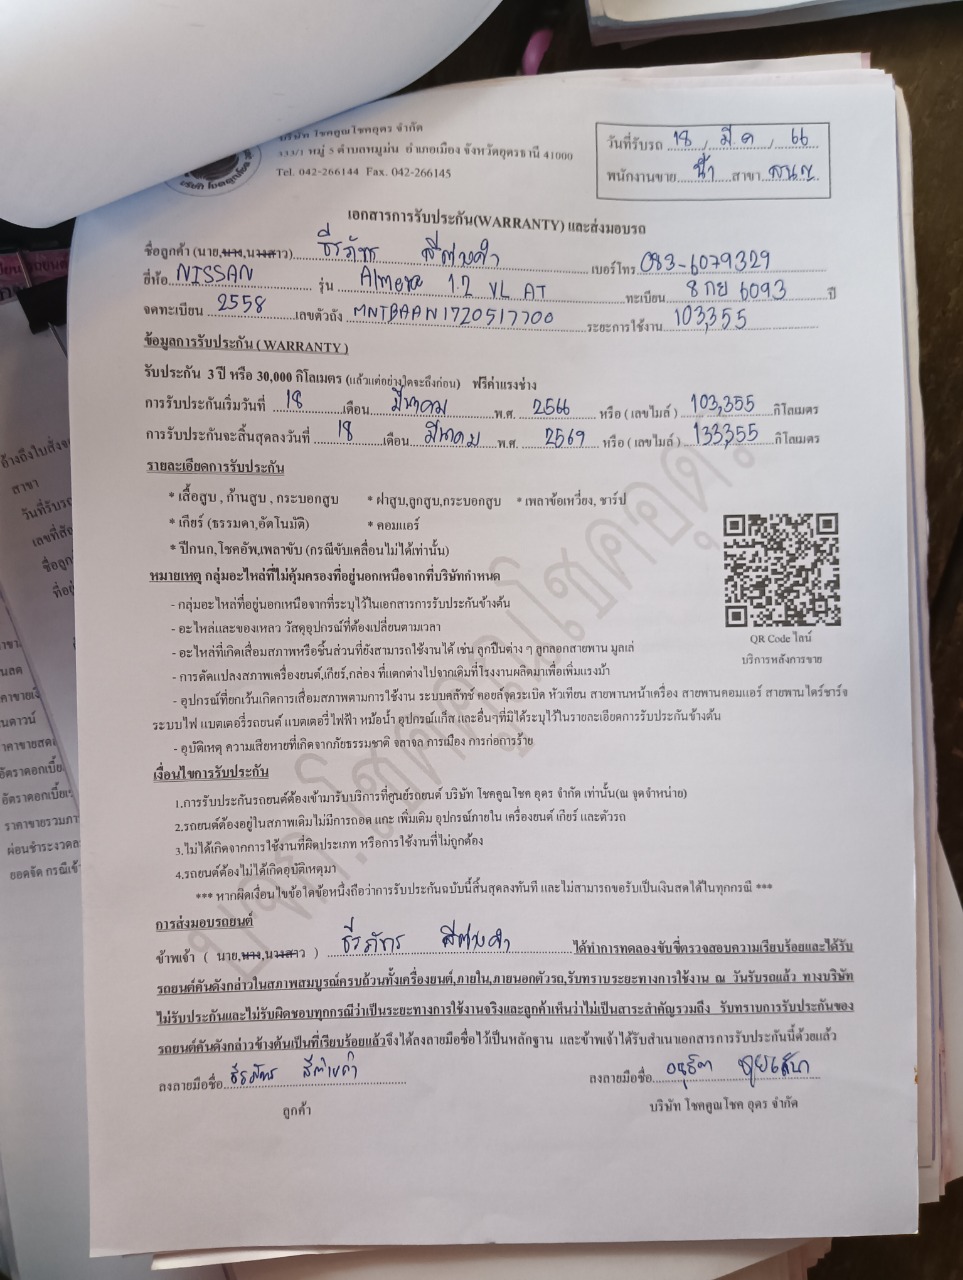 บริษัท โชคคูณโชคอุดร จำกัด
333/1 หมู่ 5 ตำบลหมูม่น อำเภอเมือง จังหวัดอุดรธานี 41000
Tel. 042-266144 Fax. 042-266145
วันที่รับรถ 18 / มี.ค / 66
พนักงานขาย น้ำ สาขา สนญ.
เอกสารการรับประกัน(WARRANTY) และส่งมอบรถ
ชื่อลูกค้า (นาย,นาง,นางสาว) ธีรภัทร เบอร์โทร 083-6079329
ยี่ห้อ NISSAN รุ่น Almera 1.2 VL AT ทะเบียน 8 กย 6093 ปี
จดทะเบียน 2558 เลขตัวถัง MNTBAAN1720517700 ระยะการใช้งาน 103,355
ข้อมูลการรับประกัน ( WARRANTY )
รับประกัน 3 ปี หรือ 30,000 กิโลเมตร (แล้วแต่อย่างใดจะถึงก่อน) ฟรีค่าแรงช่าง
การรับประกันเริ่มวันที่ 18 เดือน มีนาคม พ.ศ. 2566 หรือ ( เลขไมล์ ) 103,355 กิโลเมตร
การรับประกันจะสิ้นสุดลงวันที่ 18 เดือน มีนาคม พ.ศ. 2569 หรือ ( เลขไมล์ ) 133,355 กิโลเมตร
รายละเอียดการรับประกัน
* เสื้อสูบ , ก้านสูบ , กระบอกสูบ * ฝาสูบ,ลูกสูบ,กระบอกสูบ * เพลาข้อเหวี่ยง, ชาร์ป
* เกียร์ (ธรรมดา,อัตโนมัติ) * คอมแอร์
* ปีกนก, โชคอัพ,เพลาขับ (กรณีขับเคลื่อนไม่ได้เท่านั้น)
หมายเหตุ กลุ่มอะไหล่ที่ไม่คุ้มครองที่อยู่นอกเหนือจากที่บริษัทกำหนด
- กลุ่มอะไหล่ที่อยู่นอกเหนือจากที่ระบุไว้ในเอกสารการรับประกันข้างต้น
- อะไหล่และของเหลว วัสดุอุปกรณ์ที่ต้องเปลี่ยนตามเวลา
- อะไหล่ที่เกิดเสื่อมสภาพหรือชิ้นส่วนที่ยังสามารถใช้งานได้ เช่น ลูกปืนต่าง ๆ ลูกลอกสายพาน มูลเล่
- การดัดแปลงสภาพเครื่องยนต์,เกียร์,กล่อง ที่แตกต่างไปจากเดิมที่โรงงานผลิตมาเพื่อเพิ่มแรงม้า
- อุปกรณ์ที่ยกเว้นเกิดการเสื่อมสภาพตามการใช้งาน ระบบคลัทช์ คอยล์จุดระเบิด หัวเทียน สายพานหน้าเครื่อง สายพานคอมแอร์ สายพานไดร์ชาร์จ
ระบบไฟ แบตเตอรี่รถยนต์ แบตเตอรี่ไฟฟ้า หม้อน้ำ อุปกรณ์แก๊ส และอื่นๆที่มิได้ระบุไว้ในรายละเอียดการรับประกันข้างต้น
- อุบัติเหตุ ความเสียหายที่เกิดจากภัยธรรมชาติ จลาจล การเมือง การก่อการร้าย
QR Code ไลน์
บริการหลังการขาย
เงื่อนไขการรับประกัน
1.การรับประกันรถยนต์ต้องเข้ามารับบริการที่ศูนย์รถยนต์ บริษัท โชคคูณโชค อุดร จำกัด เท่านั้น(ณ จุดจำหน่าย)
2.รถยนต์ต้องอยู่ในสภาพเดิมไม่มีการถอด แกะ เพิ่มเติม อุปกรณ์ภายใน เครื่องยนต์ เกียร์ และตัวรถ
3.ไม่ได้เกิดจากการใช้งานที่ผิดประเภท หรือการใช้งานที่ไม่ถูกต้อง
4.รถยนต์ต้องไม่ได้เกิดอุบัติเหตุมา
*** หากผิดเงื่อนไขข้อใดข้อหนึ่งถือว่าการรับประกันฉบับนี้สิ้นสุดลงทันที และไม่สามารถขอรับเป็นเงินสดได้ในทุกกรณี ***
การส่งมอบรถยนต์
ข้าพเจ้า ( นาย,นาง,นางสาว ) ธีรภัทร ได้ทำการทดลองขับขี่ตรวจสอบความเรียบร้อยและได้รับ
รถยนต์คันดังกล่าวในสภาพสมบูรณ์ครบถ้วนทั้งเครื่องยนต์,ภายใน,ภายนอกตัวรถ,รับทราบระยะทางการใช้งาน ณ วันรับรถแล้ว ทางบริษัท
ไม่รับประกันและไม่รับผิดชอบทุกกรณีว่าเป็นระยะทางการใช้งานจริงและลูกค้าเห็นว่าไม่เป็นสาระสำคัญรวมถึง รับทราบการรับประกันของ
รถยนต์คันดังกล่าวข้างต้นเป็นที่เรียบร้อยแล้วจึงได้ลงลายมือชื่อไว้เป็นหลักฐาน และข้าพเจ้าได้รับสำเนาเอกสารการรับประกันนี้ด้วยแล้ว
ลงลายมือชื่อ ธีรภัทร ลงลายมือชื่อ
ลูกค้า บริษัท โชคคูณโชค อุดร จำกัด